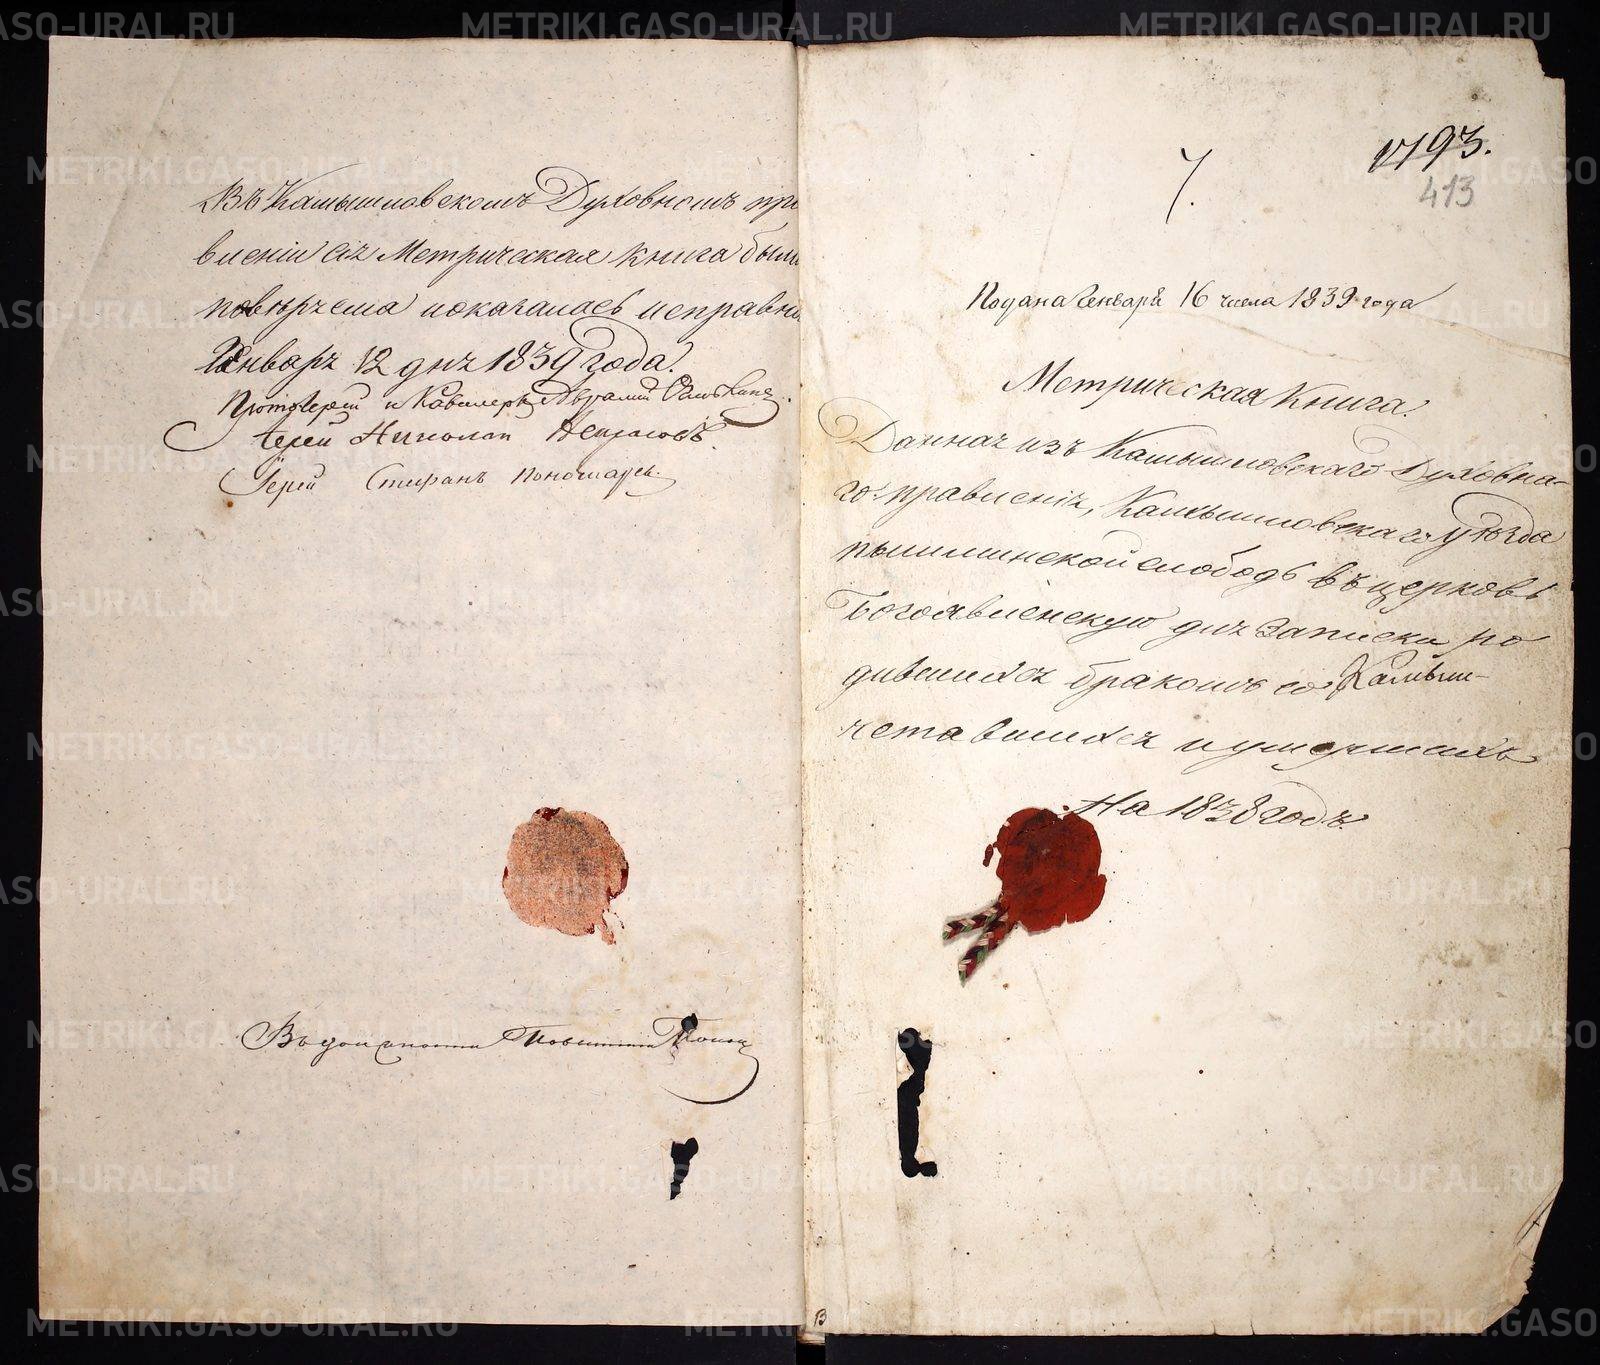 Въ Камышловскомъ Духовномъ пра
вленіи сія Метрическая книга была
повѣряема и оказалась исправно
Генваря 12 дня 1839 года.
Протоіерей и Кавалеръ
Іерей Николай Некрасовъ.
Іерей Стефанъ Пономаревъ.
7.
413
Подана Генваря 16 числа 1839 года
Метрическая Книга.
Данная изъ Камышловскаго Духовна-
го правленія, Камышловскаго уѣзда
пышминской слободѣ въ церковь
Богоявленскую для записки ро
дившихся бракомъ со
четавшихся и умершихъ
На 1838 годъ.
METRIKI.GASO-URAL.RU